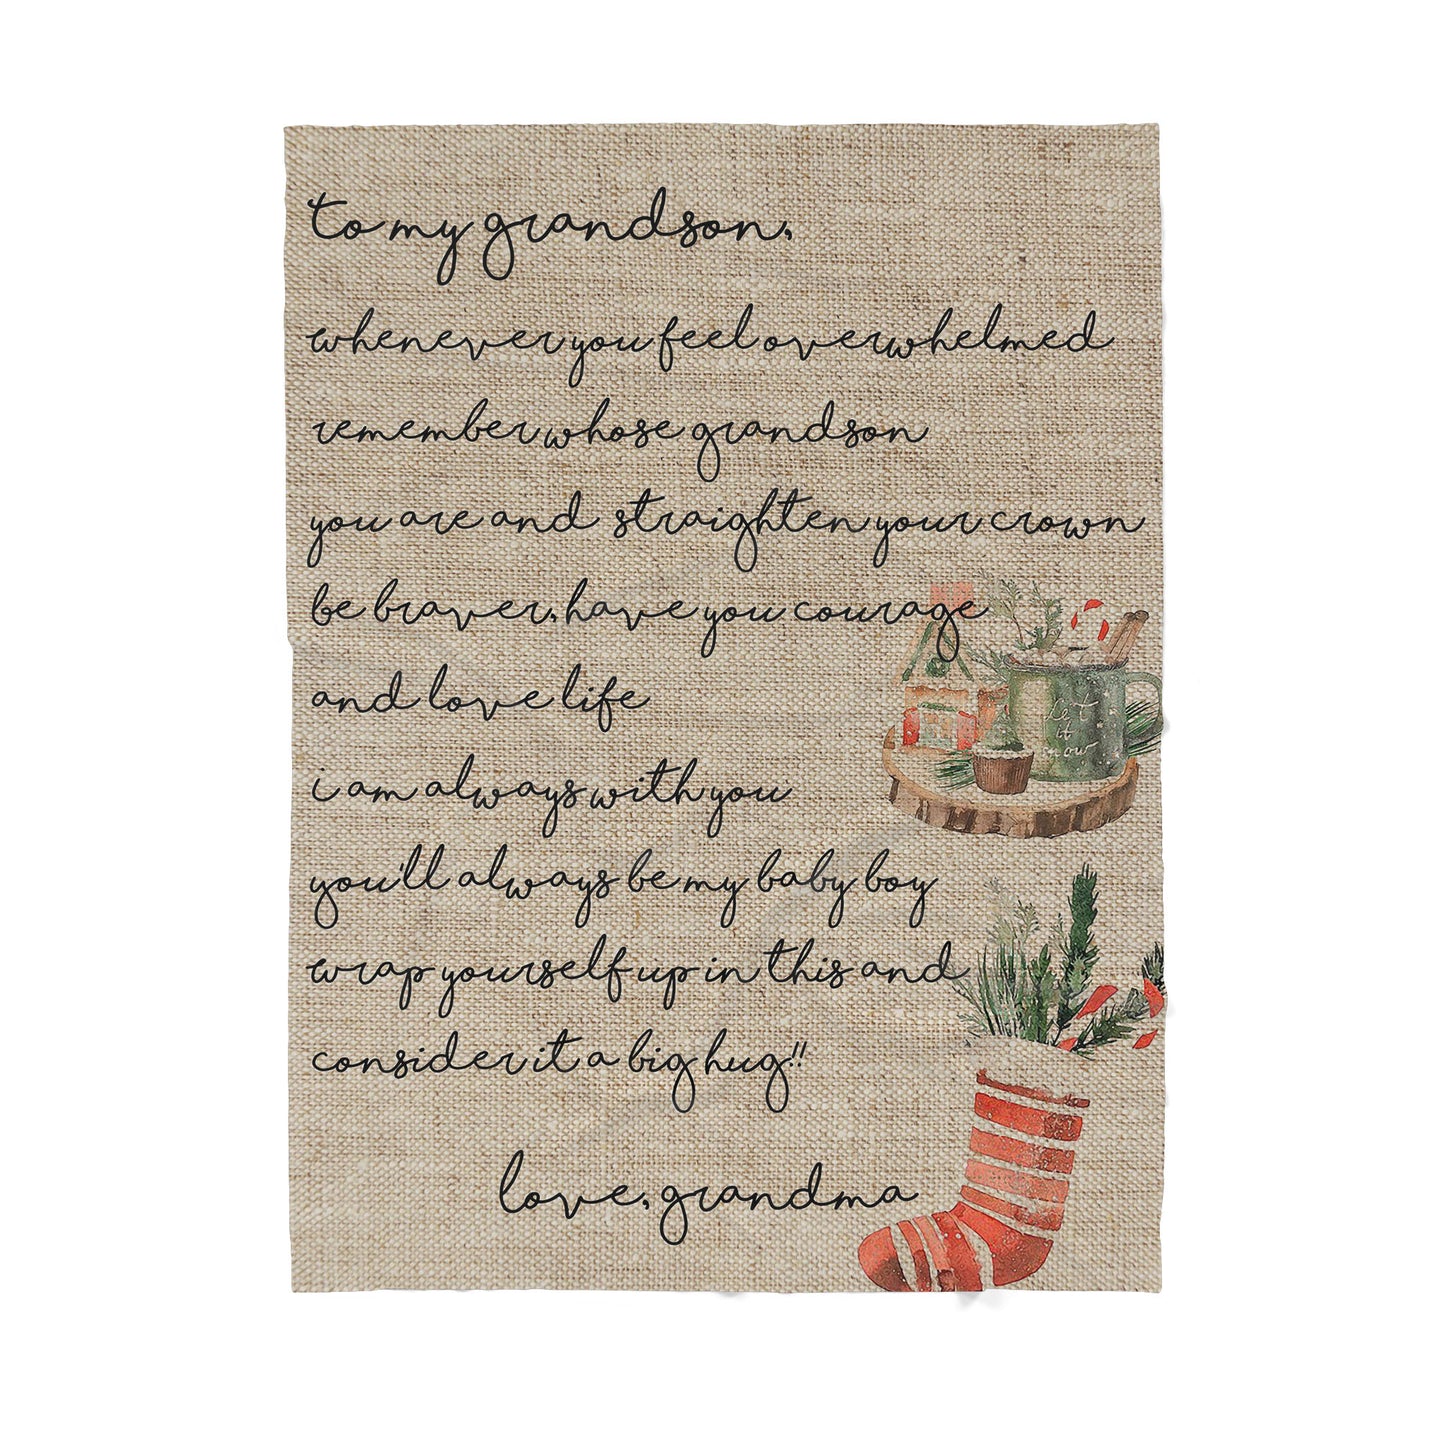 to my grandson,
whenever you feel overwhelmed
remember whose grandson
you are and straighten your crown
be braver, have you courage
and love life
i am always with you
you'll always be my baby boy
wrap yourself up in this and
consider it a big hug!!
love, grandma
Let
it
snow